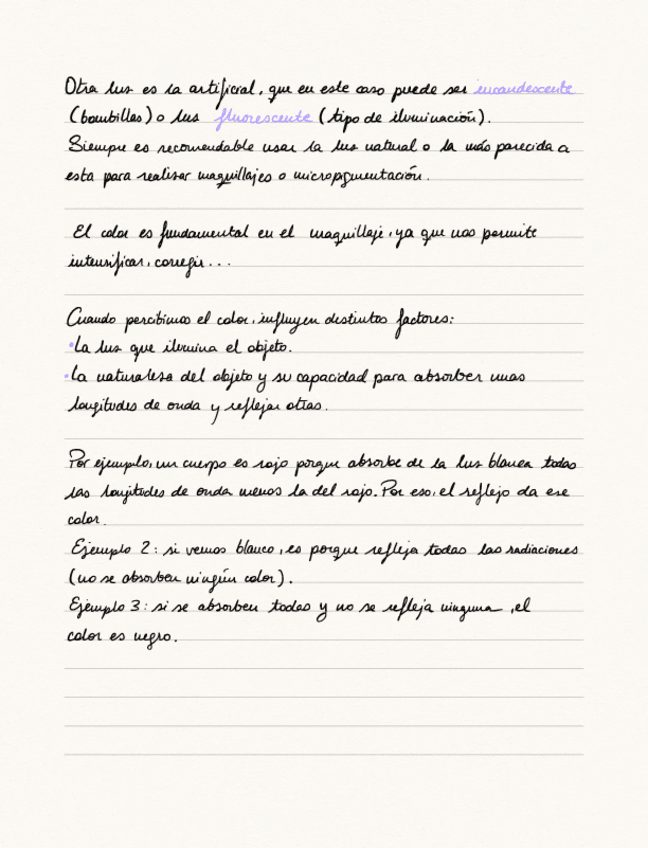 Otra luz es la artificial, que en este caso puede ser incandescente
(bombillas) o luz fluorescente (tipo de iluminación).
Siempre es recomendable usar la luz natural o la más parecida a
esta para realizar maquillajes o micropigmentación.
El color es fundamental en el maquillaje, ya que nos permite
intensificar, corregir...
Cuando percibimos el color, influyen distintos factores:
•La luz que ilumina el objeto.
•La naturaleza del objeto y su capacidad para absorber unas
longitudes de onda y reflejar otras.
Por ejemplo, un cuerpo es rojo porque absorbe de la luz blanca todas
las longitudes de onda menos la del rojo. Por eso, el reflejo da ese
color.
Ejemplo 2: si vemos blanco, es porque refleja todas las radiaciones
(no se absorben ningún color).
Ejemplo 3: si se absorben todas y no se refleja ninguna, el
color es negro.